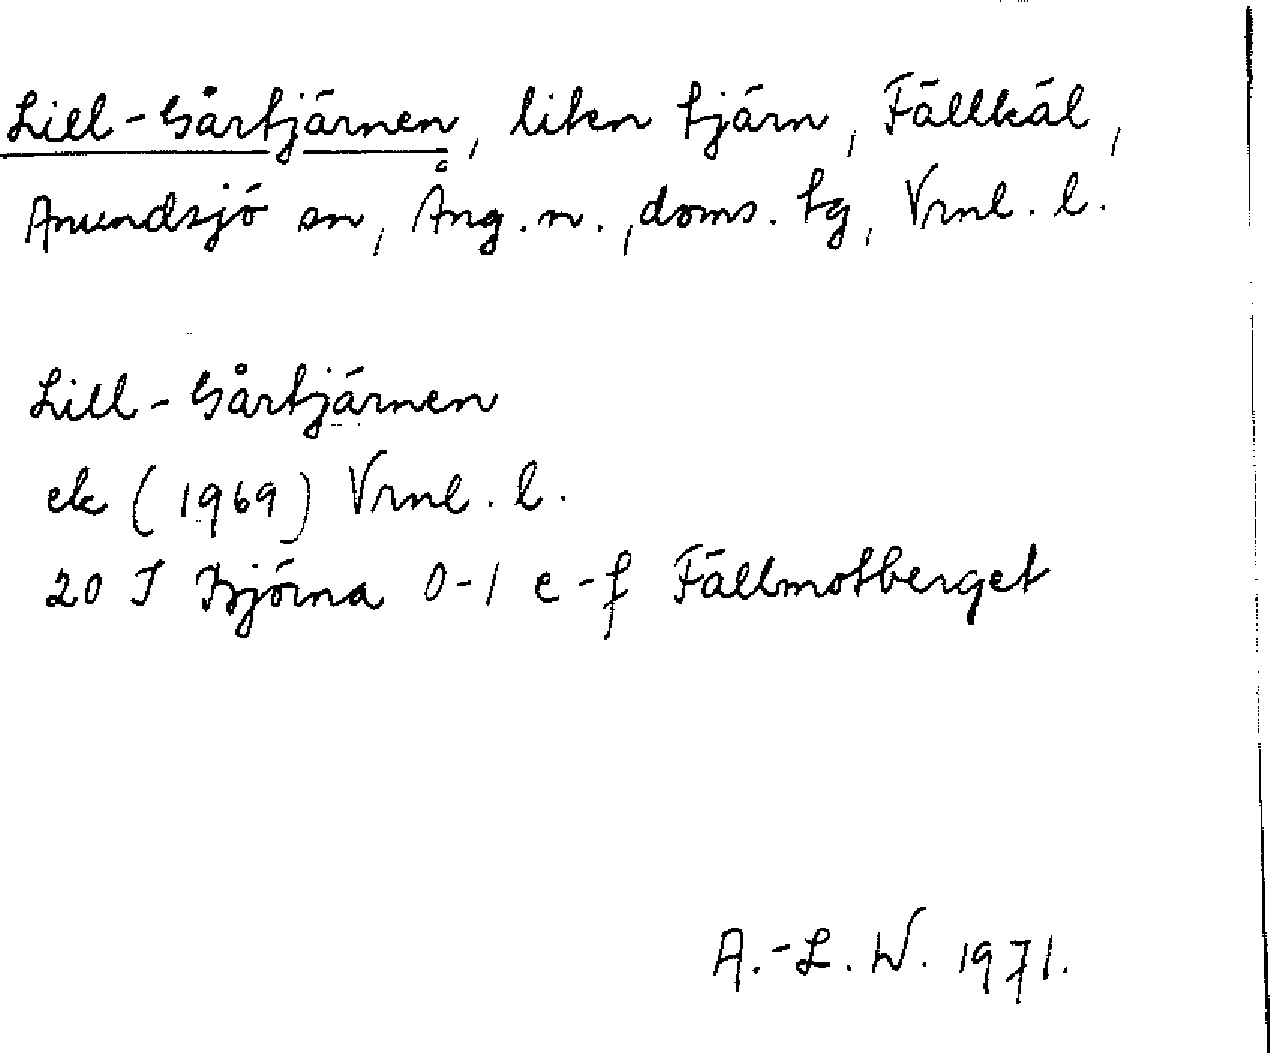 Lill-Gårtjärnen, liten tjärn, Fällkäl,
Anundsjö sn, Ång. n., doms. tg, Vrnl. l.
Lill-Gårtjärnen
ek (1969) Vrnl. l.
20 I Björna 0-1 e-f Fällmotberget
A.-L. W. 1971.